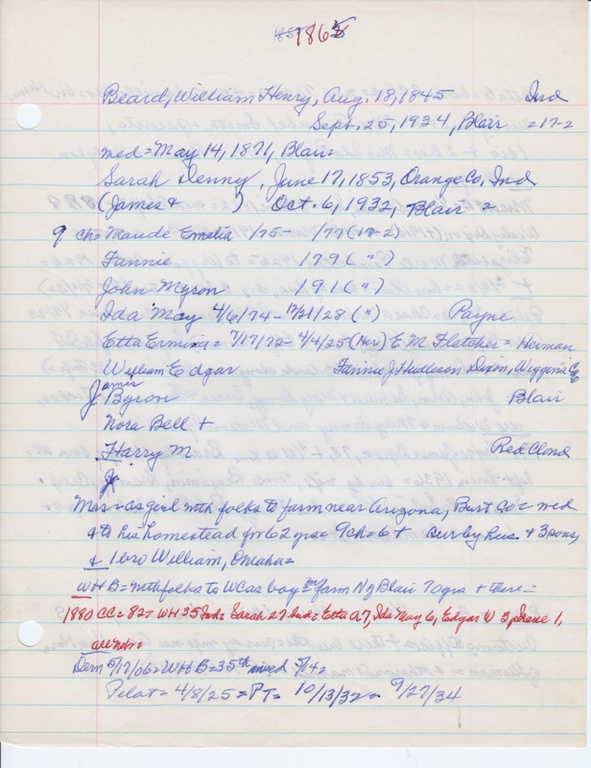 1865
Beard, William Henry, Aug. 18, 1845 Ind
Sept. 25, 1934, Blair =17-2
med = May 14, 1871, Blair=
Sarah Denny, June 17, 1853, Orange Co, Ind
(James + ) Oct. 6, 1932, Blair =
9 ch = Maude Emelia 1/75 - 1/77 (17-2)
Fannie 179 (")
John Myron 191 (")
Ida May 4/6/74 - 12/21/28 (") Payne
Etta Ermina = 7/17/72 - 4/4/25 (Her) E M Fletcher = Herman
William Edgar Fannie J Hudleson Dixon, Wiggins Co
James Byron Blair
Nora Bell +
Harry M Red Cloud
Jr
Mrs = as girl mth folks to farm near Arizona, Burt Co = med
+ to his homestead for 62 yrs = 9 ch = 6 + sur by hus. + 3 sons,
+ 1 bro William, Omaha=
WHB = mth folks to WC as boy = on farm N of Blair 70 yrs + there =
1880 CC = 82 = WH 35 Ind = Sarah 27 Ind = Etta A 7, Ida May 6, Edgar W 3, 1,
all Neb=
Dem 5/17/06 = WHB = 35th wed 5/14=
Pilot = 4/8/25 = PT = 10/13/32 = 9/27/34